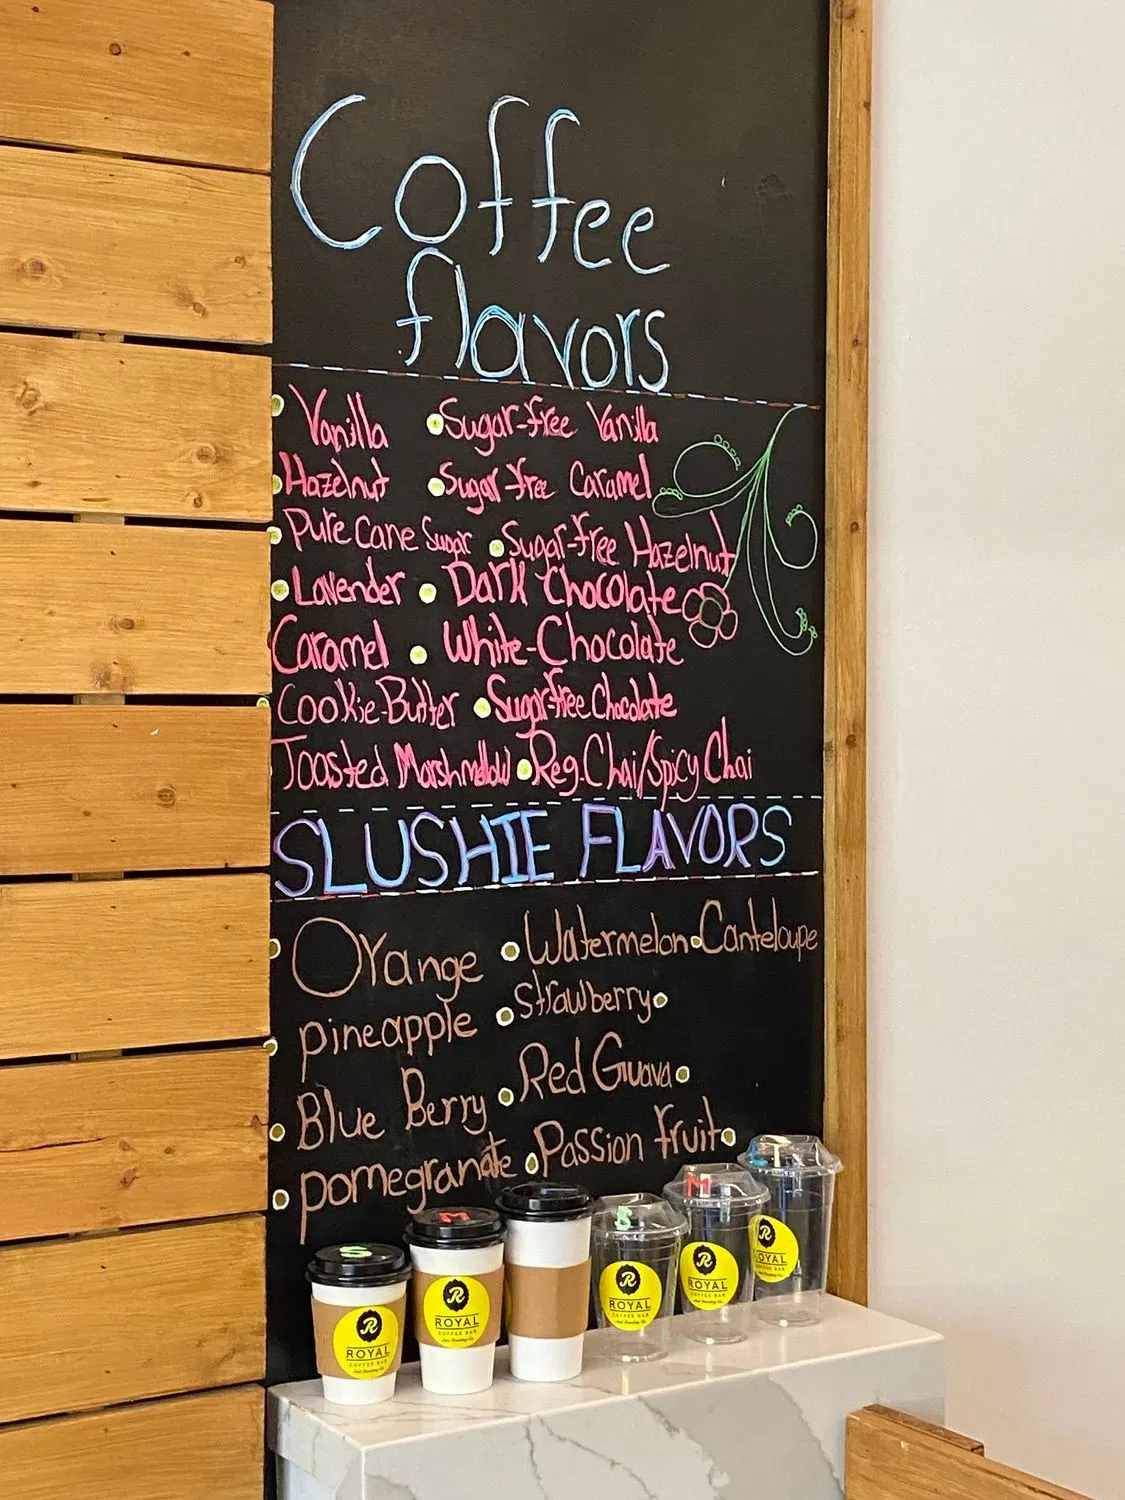 Coffee
flavors
Vanilla Sugar-free Vanilla
Hazelnut Sugar-free Caramel
Pure Cane Sugar Sugar-free Hazelnut
Lavender Dark Chocolate
Caramel White-Chocolate
Cookie-Butter Sugar-free Chocolate
Toasted Marshmallow Reg. Chai/Spicy Chai
SLUSHIE FLAVORS
Orange Watermelon Canteloupe
pineapple Strawberry
Blue Berry Red Guava
pomegranate Passion fruit
S M S M L
R R R R R
ROYAL ROYAL ROYAL ROYAL ROYAL
COFFEE BAR COFFEE BAR COFFEE BAR COFFEE BAR COFFEE BAR